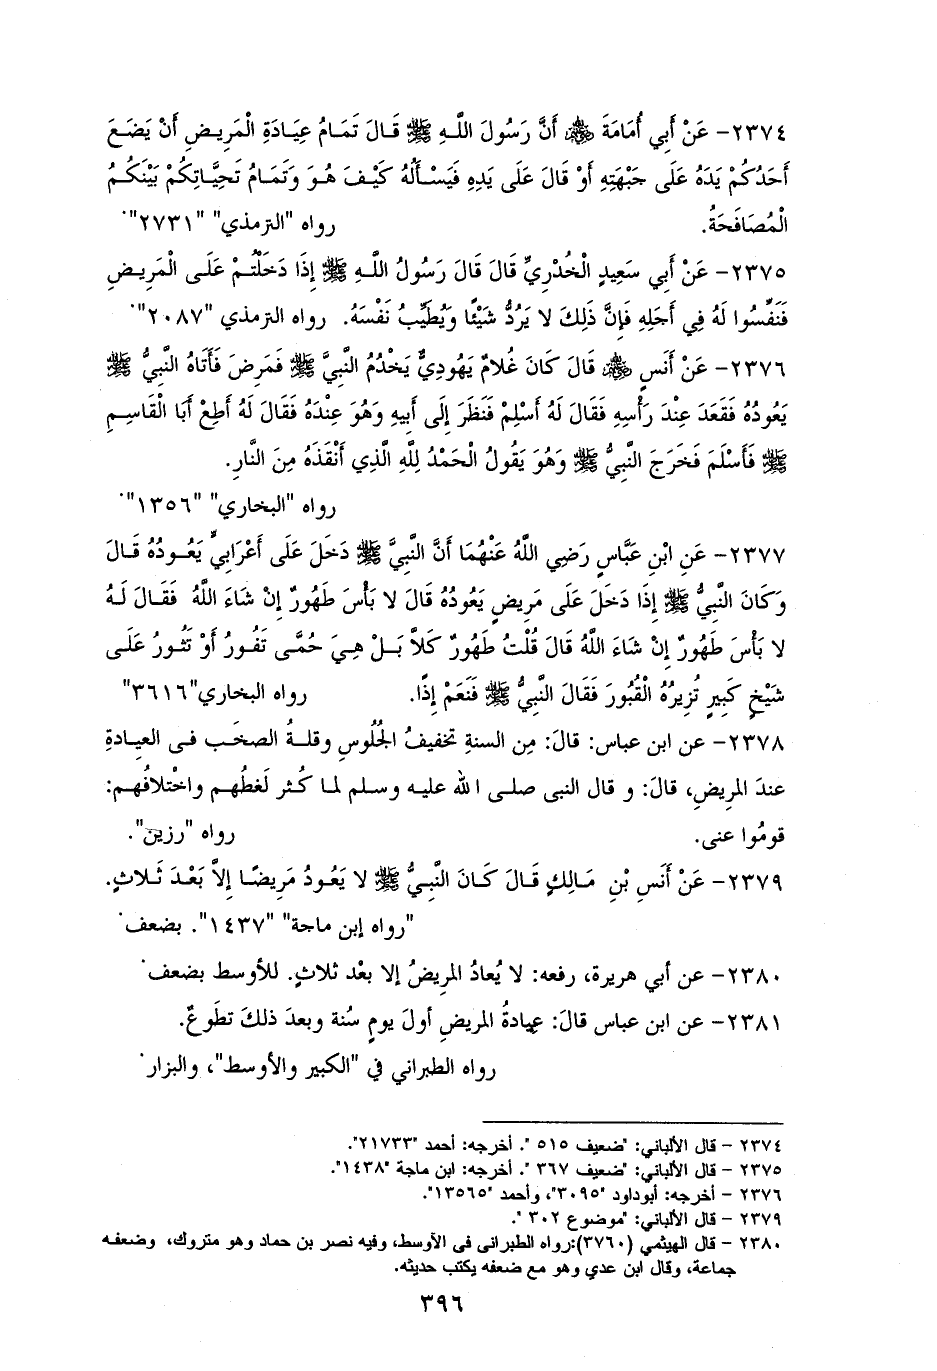 ٢٣٧٤- عَنْ أَبِي أُمَامَةَ ﷺ أَنَّ رَسُولَ اللَّهِ ﷺ قَالَ تَمَامُ عِيَادَةِ الْمَرِيضِ أَنْ يَضَعَ
أَحَدُكُمْ يَدَهُ عَلَى جَبْهَتِهِ أَوْ قَالَ عَلَى يَدِهِ فَيَسْأَلُهُ كَيْفَ هُوَ وَتَمَامُ تَحِيَّاتِكُمْ بَيْنَكُمُ
الْمُصَافَحَةُ. رواه "الترمذي" "٢٧٣١".
٢٣٧٥- عَنْ أَبِي سَعِيدٍ الْخُدْرِيِّ قَالَ قَالَ رَسُولُ اللَّهِ ﷺ إِذَا دَخَلْتُمْ عَلَى الْمَرِيضِ
فَنَفِّسُوا لَهُ فِي أَجَلِهِ فَإِنَّ ذَلِكَ لا يَرُدُّ شَيْئًا وَيُطَيِّبُ نَفْسَهُ. رواه الترمذي "٢٠٨٧".
٢٣٧٦- عَنْ أَنَسٍ ﷺ قَالَ كَانَ غُلامٌ يَهُودِيٌّ يَخْدُمُ النَّبِيَّ ﷺ فَمَرِضَ فَأَتَاهُ النَّبِيُّ ﷺ
يَعُودُهُ فَقَعَدَ عِنْدَ رَأْسِهِ فَقَالَ لَهُ أَسْلِمْ فَنَظَرَ إِلَى أَبِيهِ وَهُوَ عِنْدَهُ فَقَالَ لَهُ أَطِعْ أَبَا الْقَاسِمِ
ﷺ فَأَسْلَمَ فَخَرَجَ النَّبِيُّ ﷺ وَهُوَ يَقُولُ الْحَمْدُ لِلَّهِ الَّذِي أَنْقَذَهُ مِنَ النَّارِ.
رواه "البخاري" "١٣٥٦".
٢٣٧٧- عَنِ ابْنِ عَبَّاسٍ رَضِي اللَّهُ عَنْهُمَا أَنَّ النَّبِيَّ ﷺ دَخَلَ عَلَى أَعْرَابِيٍّ يَعُودُهُ قَالَ
وَكَانَ النَّبِيُّ ﷺ إِذَا دَخَلَ عَلَى مَرِيضٍ يَعُودُهُ قَالَ لا بَأْسَ طَهُورٌ إِنْ شَاءَ اللَّهُ فَقَالَ لَهُ
لا بَأْسَ طَهُورٌ إِنْ شَاءَ اللَّهُ قَالَ قُلْتُ طَهُورٌ كَلاَّ بَلْ هِيَ حُمَّى تَفُورُ أَوْ تَثُورُ عَلَى
شَيْخٍ كَبِيرٍ تُزِيرُهُ الْقُبُورَ فَقَالَ النَّبِيُّ ﷺ فَنَعَمْ إِذًا. رواه البخاري"٣٦١٦"
٢٣٧٨- عن ابن عباس: قالَ: مِن السنةِ تخفيفُ الجُلُوسِ وقلةُ الصخَب فى العيادةِ
عندَ المرِيضِ، قالَ: و قال النبى صلى الله عليه وسلم لما كُثر لَغطُهم واخْتلافُهم:
قومُوا عنى. رواه "رزين".
٢٣٧٩- عَنْ أَنَسِ بْنِ مَالِكٍ قَالَ كَانَ النَّبِيُّ ﷺ لا يَعُودُ مَرِيضًا إِلاَّ بَعْدَ ثَلاثٍ.
"رواه إبن ماجة" "١٤٣٧". بضعف.
٢٣٨٠- عن أبي هريرة، رفعه: لا يُعادُ المرِيضُ إلا بعْد ثلاثٍ. للأوسط بضعف.
٢٣٨١- عن ابن عباس قالَ: عيادةُ المريضِ أولَ يومٍ سُنة وبعدَ ذلكَ تطَوعٌ.
رواه الطبراني في "الكبير والأوسط"، والبزار.
٢٣٧٤ – قال الألباني: "ضعيف ٥١٥ ". أخرجه: أحمد "٢١٧٣٣".
٢٣٧٥ – قال الألباني: "ضعيف ٣٦٧ ". أخرجه: ابن ماجة "١٤٣٨".
٢٣٧٦ – أخرجه: أبوداود "٣٠٩٥"، وأحمد "١٣٥٦٥".
٢٣٧٩ – قال الألباني: "موضوع ٣٠٢ ".
٢٣٨٠ – قال الهيثمي (٣٧٦٠):رواه الطبرانى فى الأوسط، وفيه نصر بن حماد وهو متروك، وضعفه
جماعة، وقال ابن عدي وهو مع ضعفه يكتب حديثه.
٣٩٦